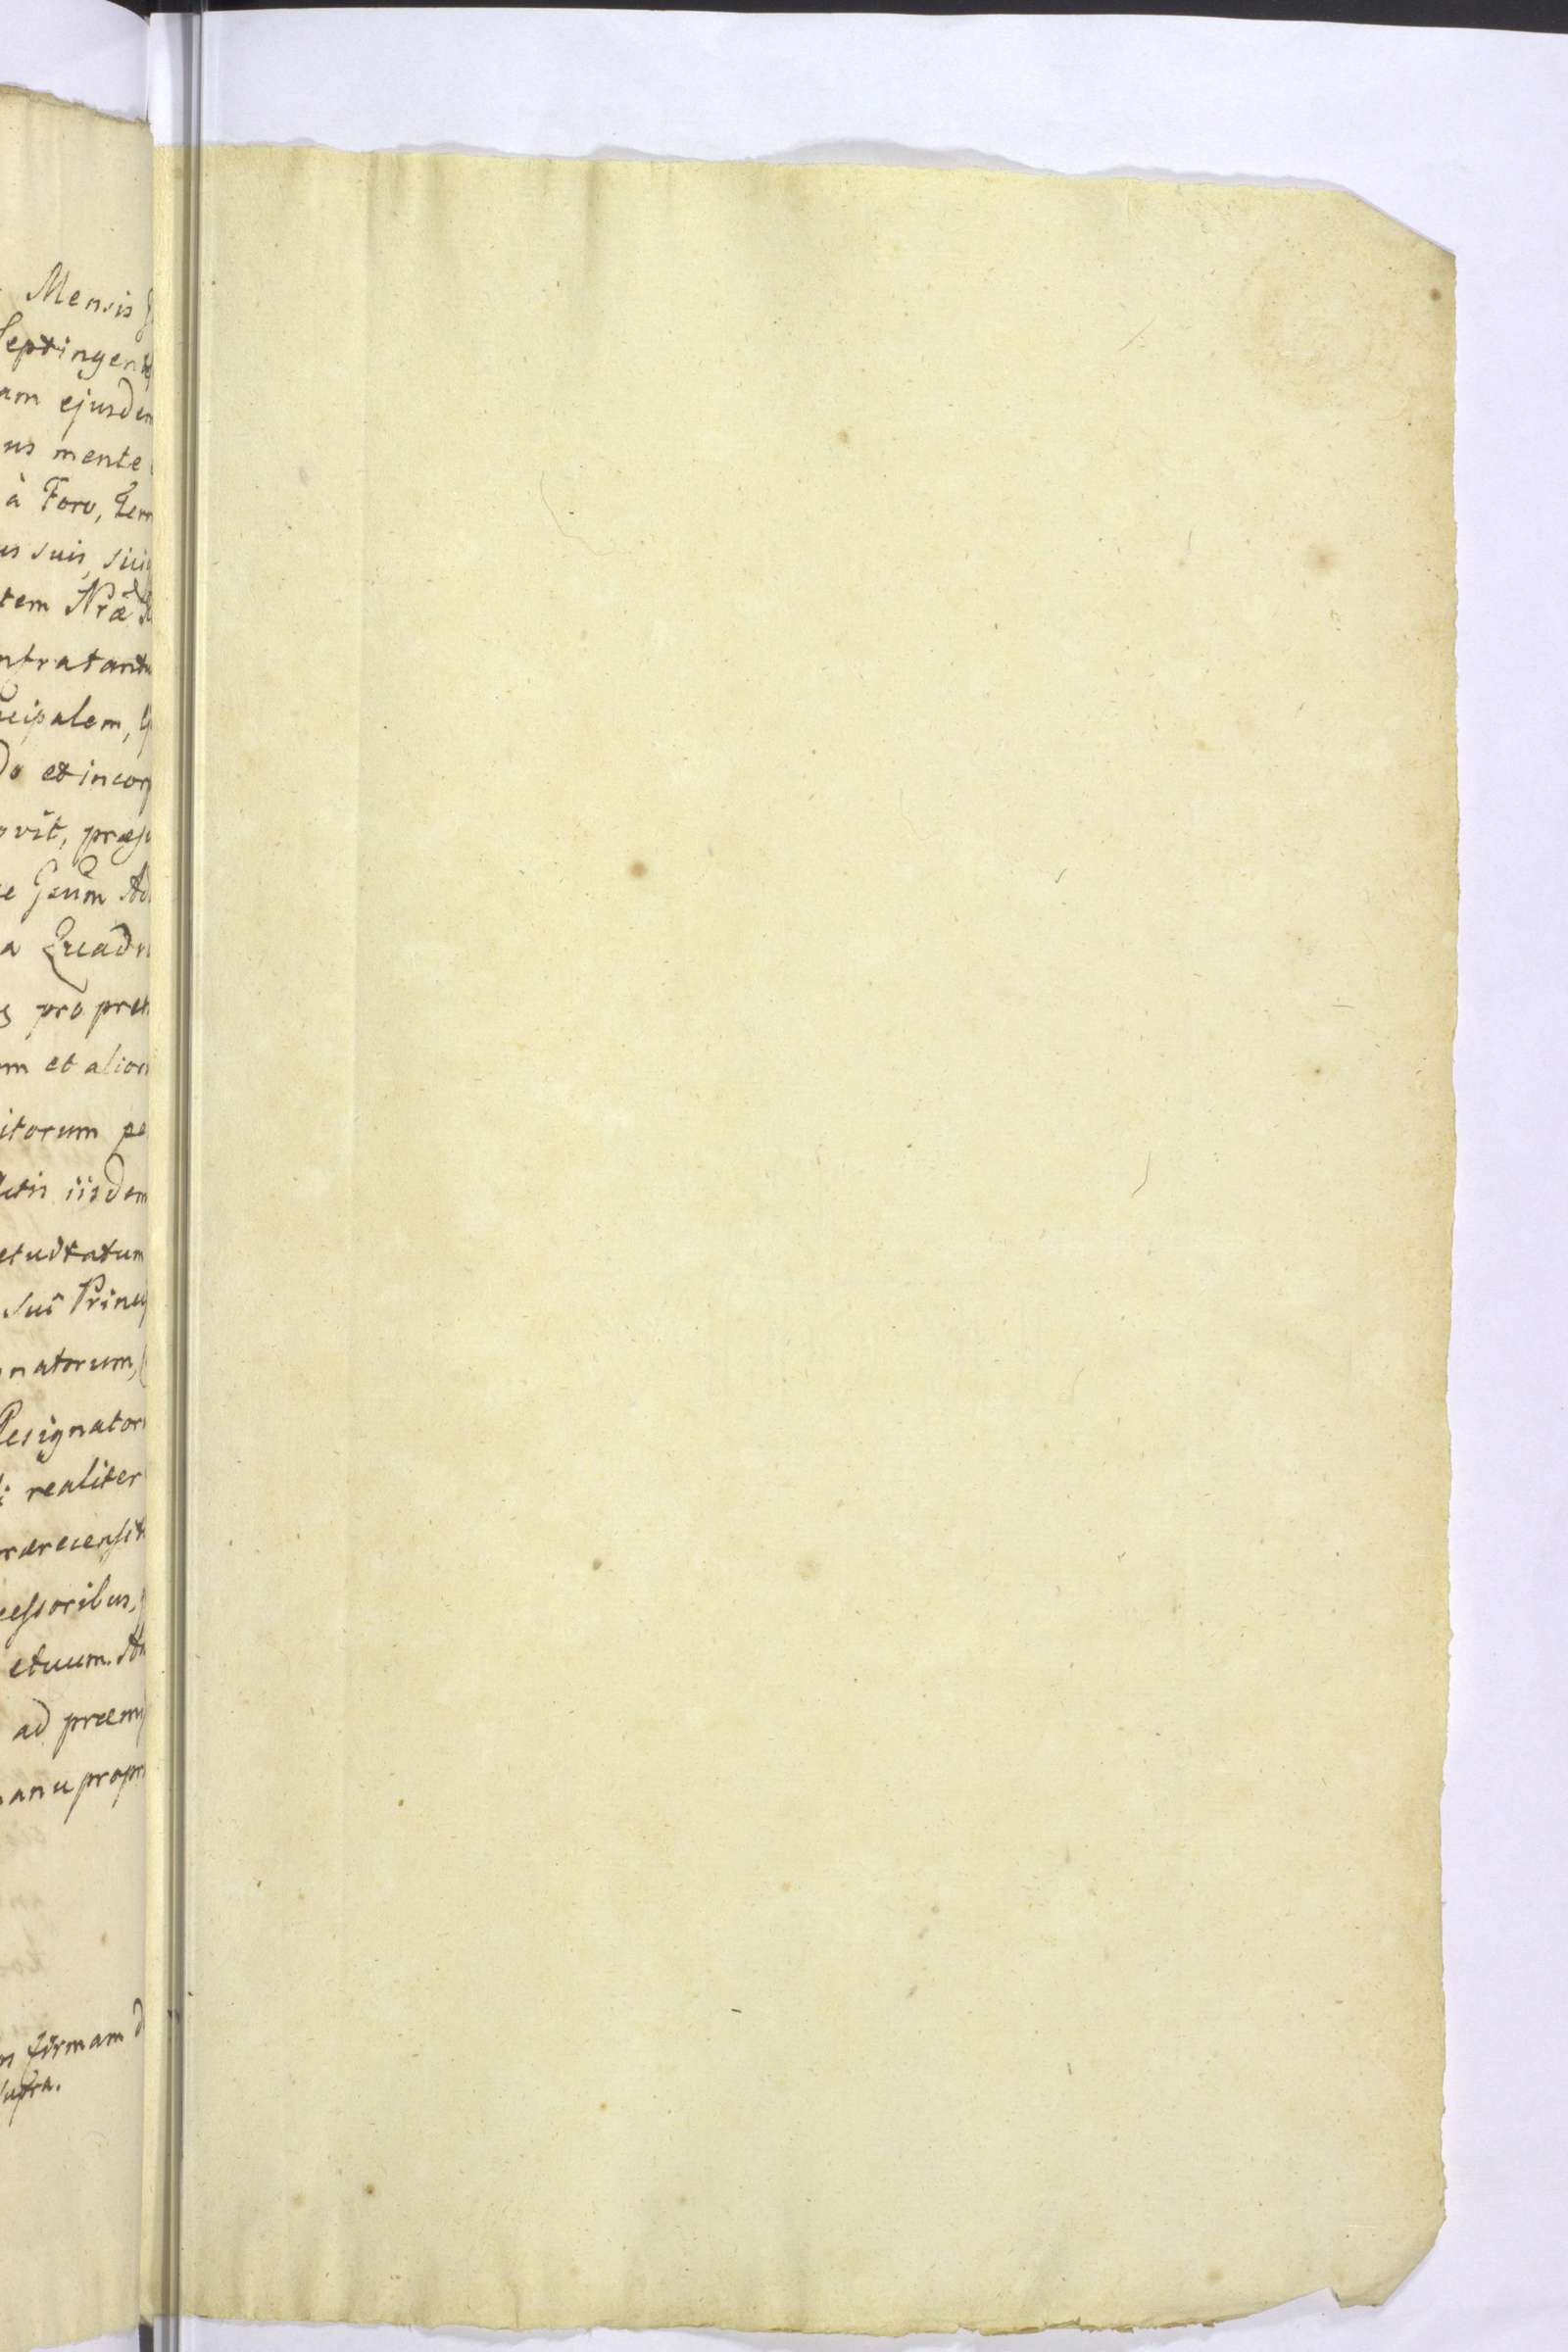 Mensis
Septingent
am ejusdem
us mente
à Foro, Terr
us suis, sui
tem Nræ
ntratant
ncipalem,
do et incorp
vit, præs
e Gsum
a Quadr
pro pret
m et alior
itorum pe
iisdem
Sui Princi
natorum,
Resignator
realiter
rærecensit
cessoribus,
etuum. An
ad præm
anu propr
formam d
supra.